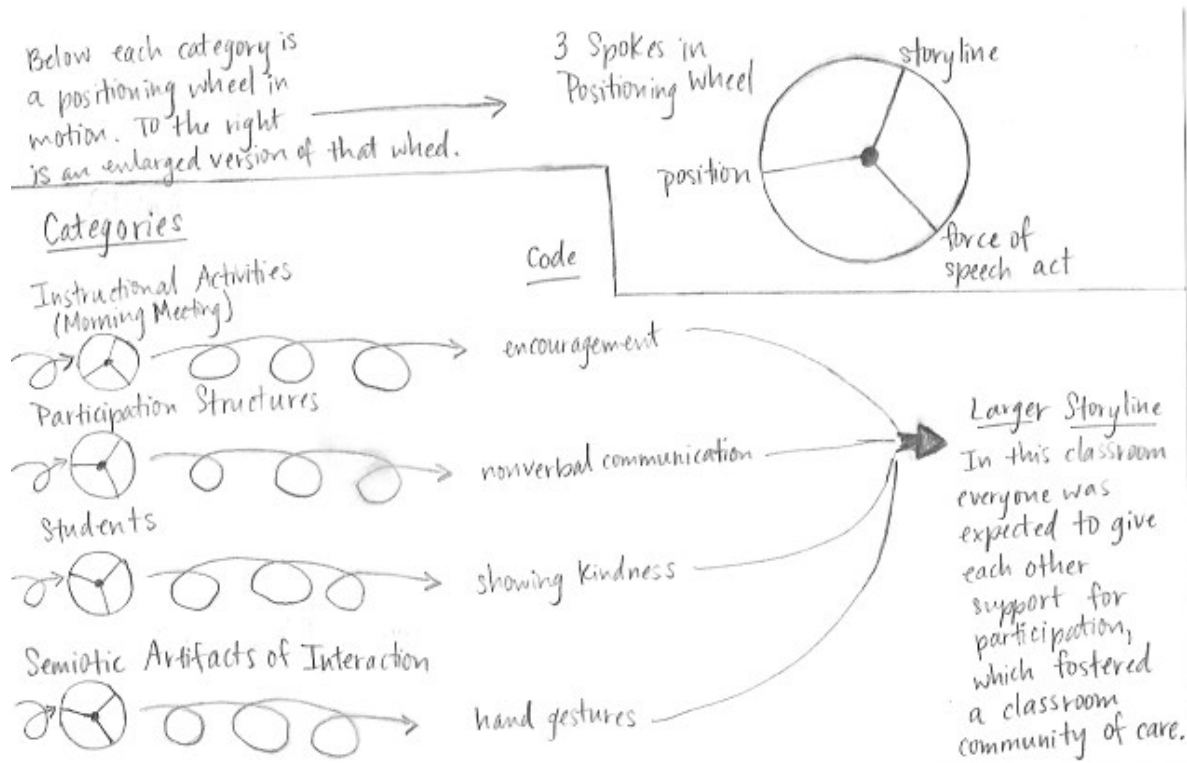 Below each category is
a positioning wheel in
motion. To the right
is an enlarged version of that wheel.
3 Spokes in
Positioning Wheel
storyline
position
force of
speech act
Categories
Code
Instructional Activities
(Morning Meeting)
encouragement
Participation Structures
nonverbal communication
Students
showing kindness
Semiotic Artifacts of Interaction
hand gestures
Larger Storyline
In this classroom
everyone was
expected to give
each other
support for
participation,
which fostered
a classroom
community of care.